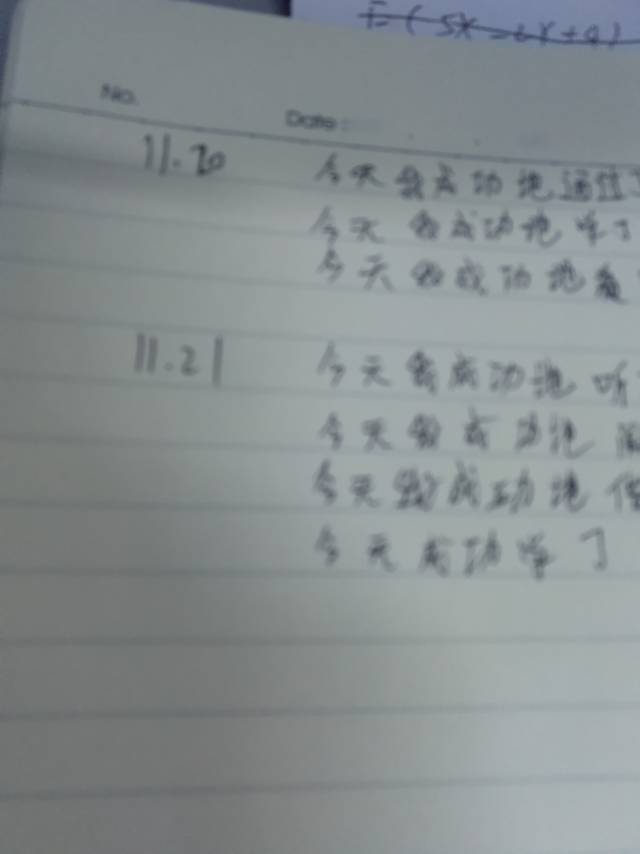 E(5X-6Y+9)
No.
Date:
11.20 今天我成功地通过
今天我成功地学了
今天我成功地
11.21 今天我成功地听
今天我成功地
今天我成功地
今天成功学了